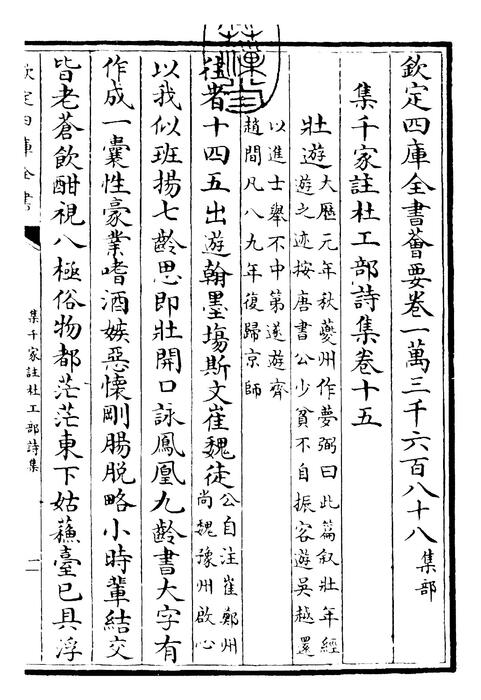 欽定四庫全書薈要卷一萬三千六百八十八 集部
集千家註杜工部詩集卷十五
壯遊 大厯元年秋夔州作夢弼曰此篇叙壯年經
遊之迹按唐書公少貧不自振客遊吳越還
以進士舉不中第遂遊齊
趙間凡八九年復歸京師
往者十四五出遊翰墨塲斯文崔魏徒 公自注崔鄭州
尚魏豫州啟心
以我似班揚七齡思即壯開口詠鳳凰九齡書大字有
作成一囊性豪業嗜酒嫉惡懐剛腸脱略小時輩結交
皆老蒼飲酣視八極俗物都茫茫東下姑蘓臺已具浮
欽定四庫全書
集千家註杜工部詩集
一